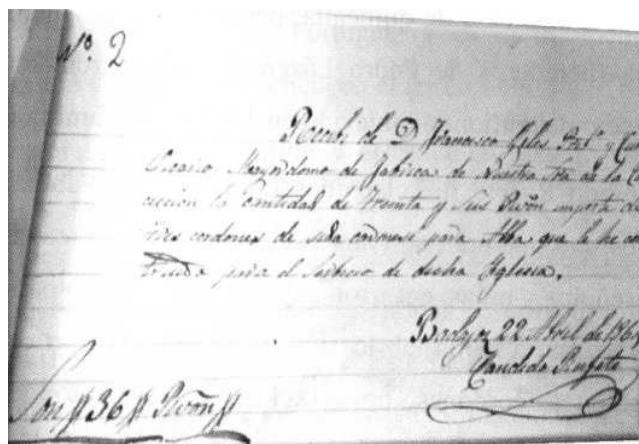 Nº. 2
Recibí de D. Francisco Giles Prbº y Cur
Mayordomo de fabrica de Nuestra Sra de la Co
la Cantidad de treinta y seis Rvõn importe de
tres cordones de seda carmesi para Alba que le he con
para el servicio de dicha Yglesia.
Badajoz 22 Abril de 186
Candido
Son # 36 # Rvõn #